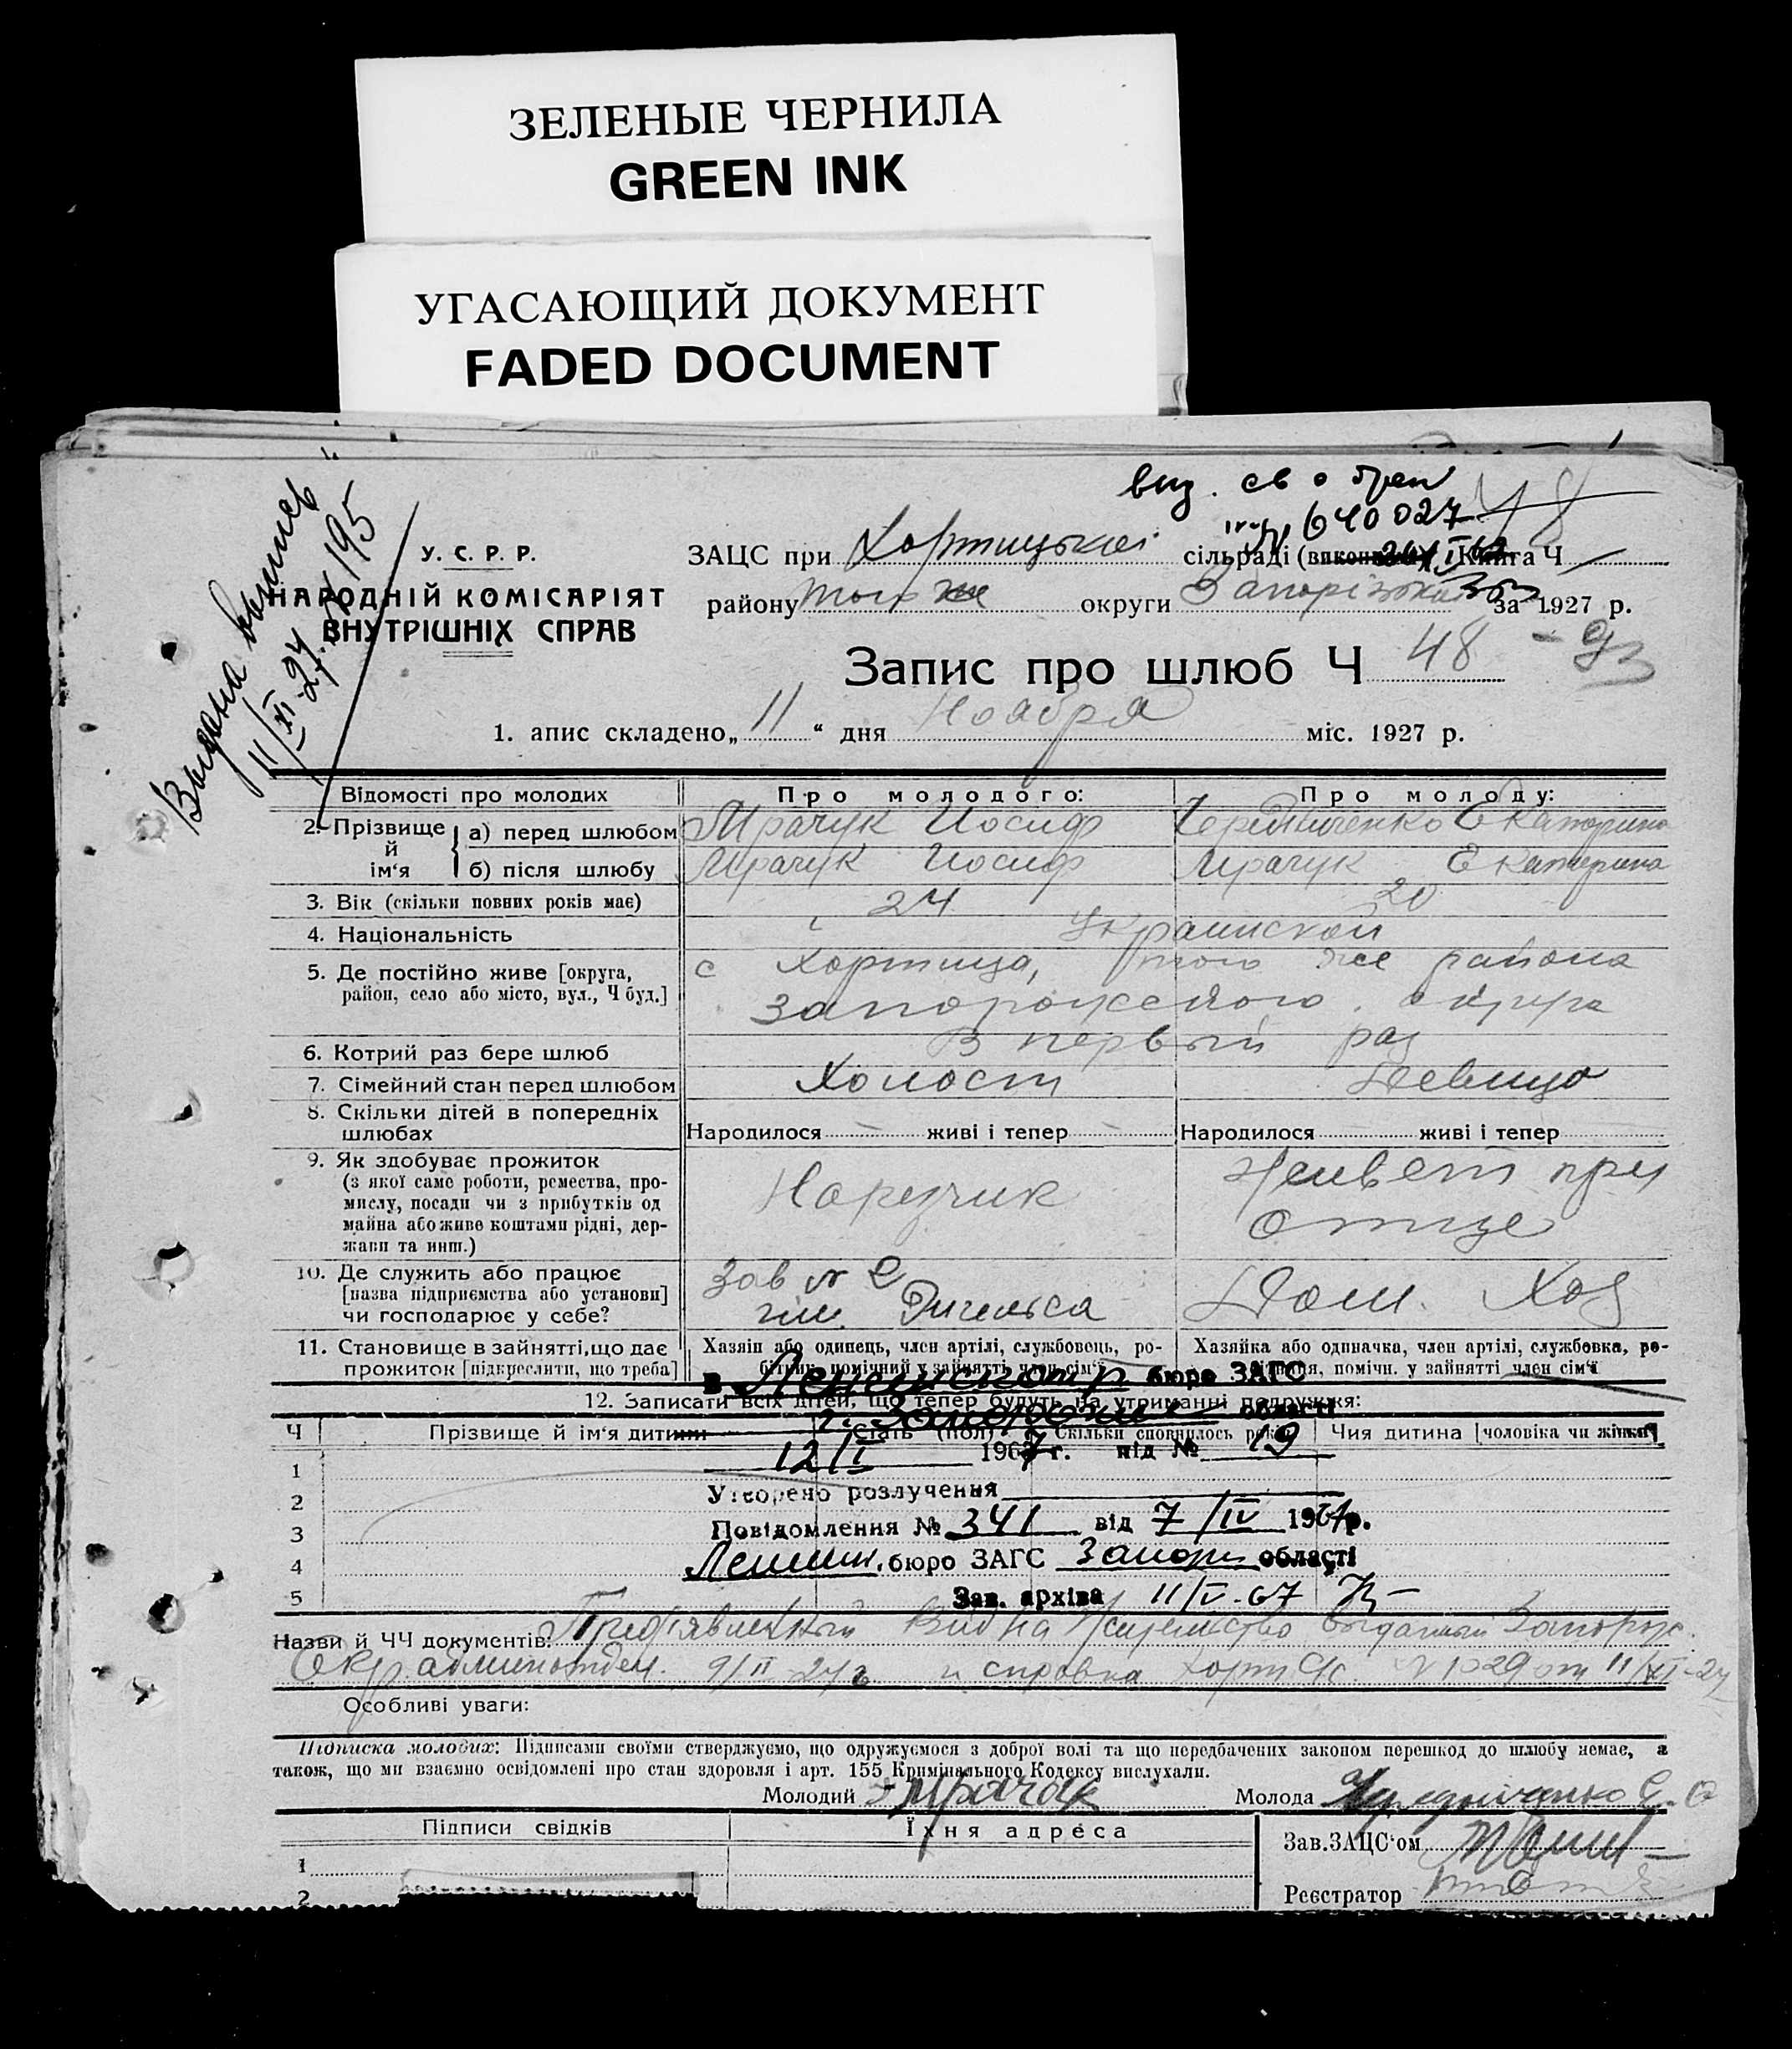 ЗЕЛЕНЫЕ ЧЕРНИЛА
GREEN INK
УГАСАЮЩИЙ ДОКУМЕНТ
FADED DOCUMENT
640027
48
Видана
11/XI 27
У. С. Р. Р.
НАРОДНІЙ КОМІСАРІЯТ
ВНУТРІШНІХ СПРАВ
ЗАЦС при Хортицькой сільраді Книга Ч
району того же округи Запорізької за 1927 р.
Запис про шлюб Ч 48
1. апис складено „ 11 “ дня Ноября міс. 1927 р.
Відомості про молодих
Про молодого:
Про молоду:
2. Прізвище й ім‘я
а) перед шлюбом Мрачук Иосиф Екатерина
б) після шлюбу Мрачук Иосиф Мрачук Екатерина
3. Вік (скільки повних років має) 24 20
4. Національність Украинской
5. Де постійно живе [округа, район, село або місто, вул., Ч буд.]
с Хортица, того же района
Запорожского округа
6. Котрий раз бере шлюб В первый раз
7. Сімейний стан перед шлюбом Холост Девица
8. Скільки дітей в попередніх шлюбах
Народилося живі і тепер Народилося живі і тепер
9. Як здобуває прожиток
(з якої саме роботи, ремества, про-
мислу, посади чи з прибутків од
майна або живе коштами рідні, дер-
жави та инш.)
Нарезчик
Живет при
отце
10. Де служить або працює
[назва підприємства або установи]
чи господарює у себе?
Зав №
им. Энгельса
Дом. Хоз
11. Становище в зайнятті, що дає
прожиток [підкреслити, що треба]
Хазяін або одинець, член артілі, службовець, ро-
бітник, помічний у зайнятті член сім‘ї
Хазяйка або одиначка, член артілі, службовка, ро-
помічн. у зайнятті член сім‘ї
в Ленинском р бюро ЗАГС
12. Записати всіх дітей, що тепер будуть на утриманні подружжя:
області
Ч Прізвище й ім‘я дитини Стать (пол) Скільки сповнилось років Чия дитина [чоловіка чи жінки]
12/I 1967 г. під № 19
1
2
3
4
5
Утворено розлучення
Повідомлення № 341 від 7/IV 1967 р.
Ленин. бюро ЗАГС Запор області
Зав. архіва 11/V-67
Назви й ЧЧ документів: Вид на выданный Запорож.
Окр. 27 г. и справка Хорт С/с. № 1029 от 11/XI-27
Особливі уваги:
Підписка молодих: Підписами своїми стверджуємо, що одружуємося з доброї волі та що передбачених законом перешкод до шлюбу немає, а
також, що ми взаємно освідомлені про стан здоровля і арт. 155 Кримінального Кодексу вислухали.
Молодий Мрачук Молода Чередніченко Е. О
Підписи свідків
Їхня адреса
1
2
Зав.ЗАЦС‘ом
Реєстратор